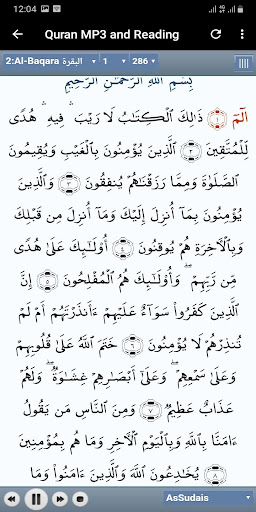 12:04
Quran MP3 and Reading
2:Al-Baqara البقرة 1 286
بِسْمِ ٱللَّهِ ٱلرَّحْمَٰنِ ٱلرَّحِيمِ
الٓمٓ ۝١ ذَٰلِكَ ٱلْكِتَٰبُ لَا رَيْبَ ۛ فِيهِ ۛ هُدًى
لِّلْمُتَّقِينَ ۝٢ ٱلَّذِينَ يُؤْمِنُونَ بِٱلْغَيْبِ وَيُقِيمُونَ
ٱلصَّلَوٰةَ وَمِمَّا رَزَقْنَٰهُمْ يُنفِقُونَ ۝٣ وَٱلَّذِينَ
يُؤْمِنُونَ بِمَآ أُنزِلَ إِلَيْكَ وَمَآ أُنزِلَ مِن قَبْلِكَ
وَبِٱلْءَاخِرَةِ هُمْ يُوقِنُونَ ۝٤ أُو۟لَٰٓئِكَ عَلَىٰ هُدًى
مِّن رَّبِّهِمْ ۖ وَأُو۟لَٰٓئِكَ هُمُ ٱلْمُفْلِحُونَ ۝٥ إِنَّ
ٱلَّذِينَ كَفَرُوا۟ سَوَآءٌ عَلَيْهِمْ ءَأَنذَرْتَهُمْ أَمْ لَمْ
تُنذِرْهُمْ لَا يُؤْمِنُونَ ۝٦ خَتَمَ ٱللَّهُ عَلَىٰ قُلُوبِهِمْ
وَعَلَىٰ سَمْعِهِمْ ۖ وَعَلَىٰٓ أَبْصَٰرِهِمْ غِشَٰوَةٌ ۖ وَلَهُمْ
عَذَابٌ عَظِيمٌ ۝٧ وَمِنَ ٱلنَّاسِ مَن يَقُولُ
ءَامَنَّا بِٱللَّهِ وَبِٱلْيَوْمِ ٱلْءَاخِرِ وَمَا هُم بِمُؤْمِنِينَ ۝٨
يُخَٰدِعُونَ ٱللَّهَ وَٱلَّذِينَ ءَامَنُوا۟ وَمَا
AsSudais